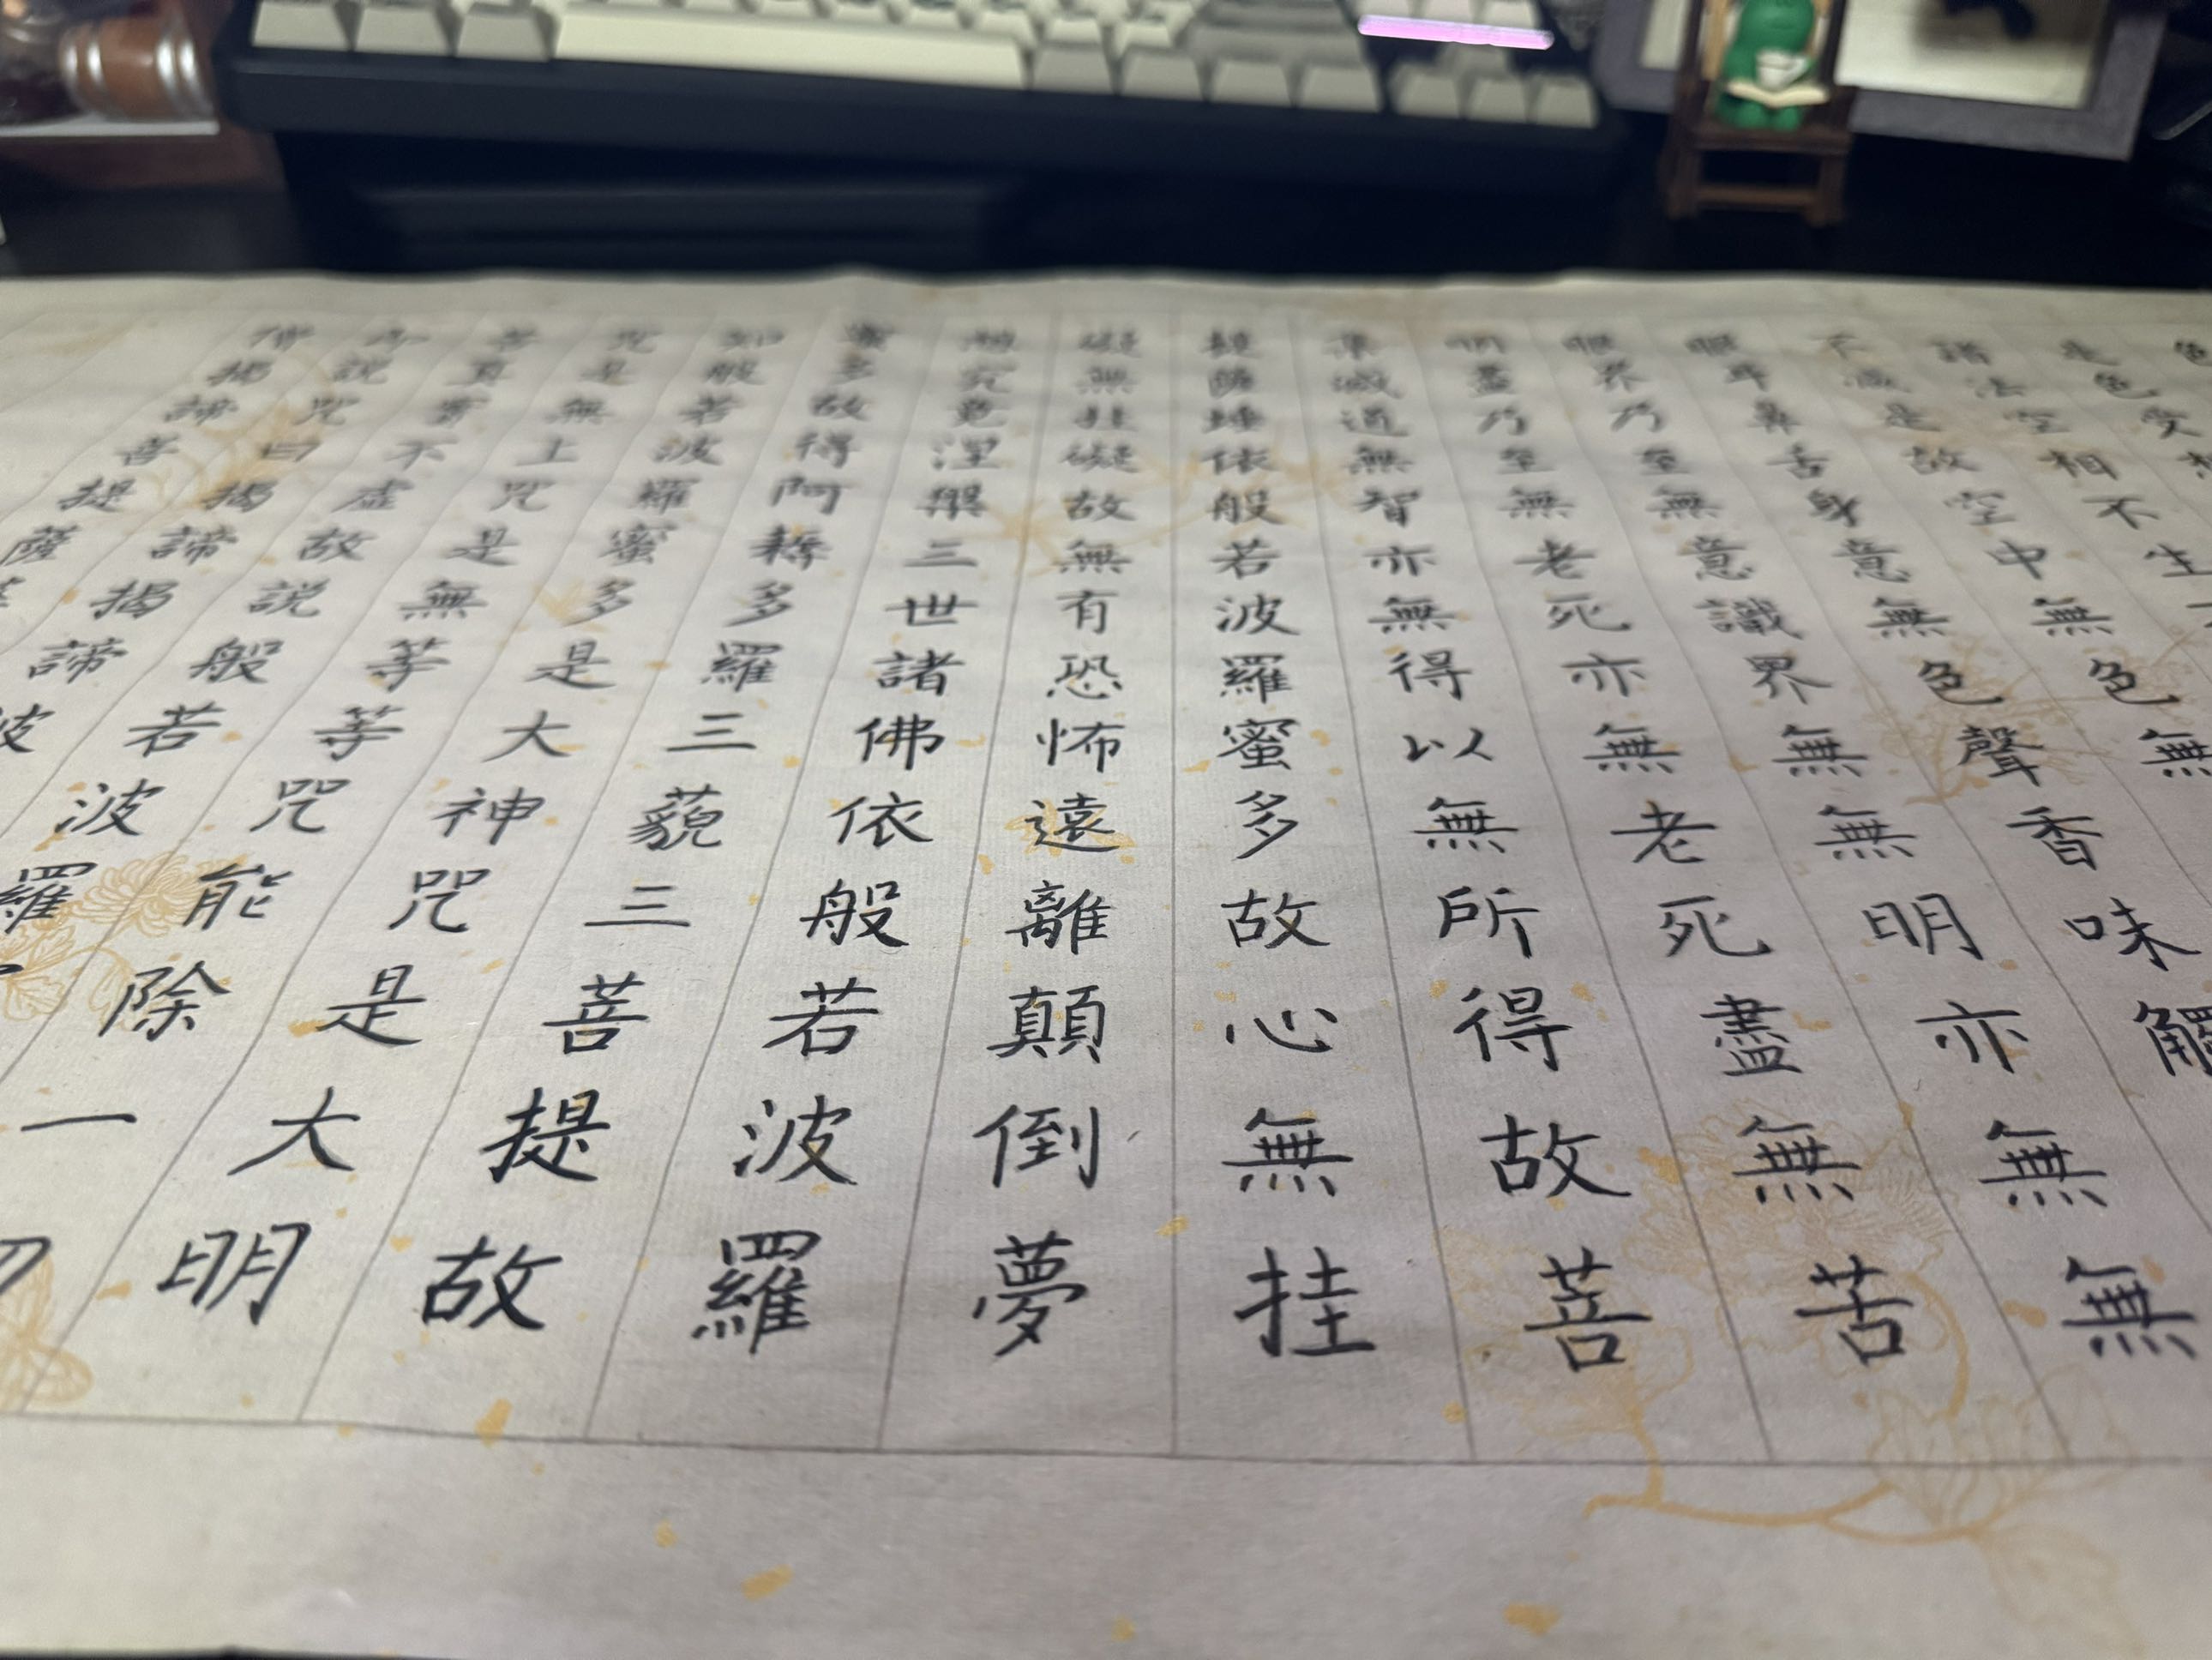 色
是色受想
諸法空相不生
不減是故空中無色無
眼耳鼻舌身意無色聲香味觸
眼界乃至無意識界無無明亦無無
明盡乃至無老死亦無老死盡無苦
集滅道無智亦無得以無所得故菩
提薩埵依般若波羅蜜多故心無挂
礙無挂礙故無有恐怖遠離顛倒夢
想究竟涅槃三世諸佛依般若波羅
蜜多故得阿耨多羅三藐三菩提故
知般若波羅蜜多是大神咒是大明
咒是無上咒是無等等咒能除一
苦真實不虛故說般若波羅
即說咒曰揭諦揭諦波
僧揭諦菩提薩